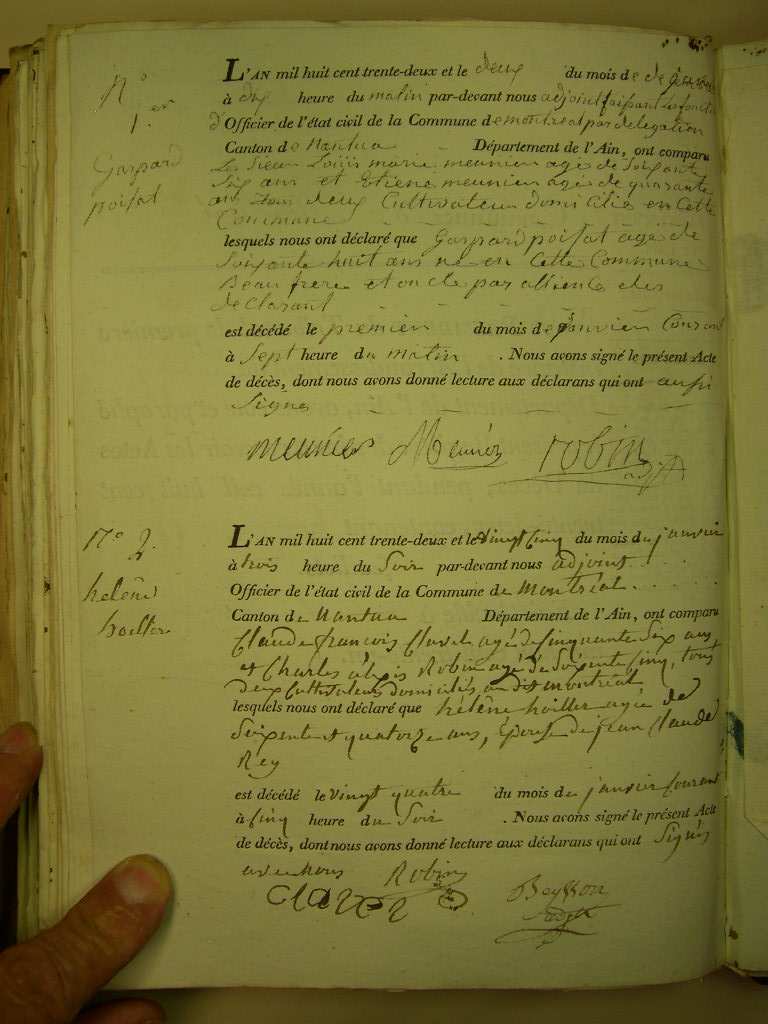 N°
1.er
Gaspard
poisat
L'AN mil huit cent trente-deux et le deux du mois de
à dix heure du matin par-devant nous adjoint faisant les foncti
d'Officier de l'état civil de la Commune de montreal par delegation
Canton de Nantua Département de l'Ain, ont comparu
Les Sieur Louijs marie meunier agé de Soixante
Six ans et Etiene meunier agé de quarante
ans tous deux Cultivateur domicilié en Cette
Commune
lesquels nous ont déclaré que Gaspard poisat agé de
Soixante huit ans né en Cette Commune
Beau frere et oncle par allience des
declarant
est décédé le premier du mois de janvier Courant
à Sept heure du matin . Nous avons signé le présent Acte
de décès, dont nous avons donné lecture aux déclarans qui ont aussi
Signé
meunier Meunier robin
N° 2.
helène
hoiller
L'AN mil huit cent trente-deux et le vingt cinq du mois de janvier
à trois heure du Soir par-devant nous adjoint
Officier de l'état civil de la Commune de Montréal
Canton de Nantua Département de l'Ain, ont comparu
Claude françois Clavel agé de Cinquante Six ans
et Charles aléxis Robin agé de Soixente Cinq, tous
deux Cultivateurs domiciliés au dit montréal
lesquels nous ont déclaré que hélène hoiller agée de
Soixente et quatorze ans, Epouse de jean Claude
Rey
est décédé le vingt quatre du mois de janvier Courant
à Cinq heure du Soir . Nous avons signé le présent Acte
de décès, dont nous avons donné lecture aux déclarans qui ont Signés
avec nous Robin
Clavel Beysson
adjt